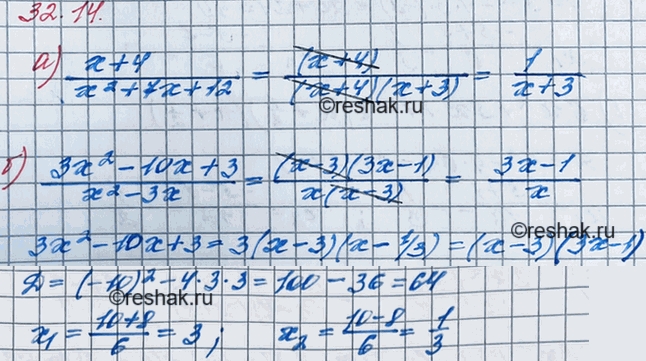 32.14.
а) (x+4)/(x²+7x+12) = (x+4)/((x+4)(x+3)) = 1/(x+3)
©reshak.ru
б) (3x²-10x+3)/(x²-3x) = ((x-3)(3x-1))/(x(x-3)) = (3x-1)/x
©reshak.ru
3x²-10x+3 = 3(x-3)(x-1/3) = (x-3)(3x-1)
D = (-10)²-4·3·3 = 100-36 = 64
©reshak.ru
x₁ = (10+8)/6 = 3; x₂ = (10-8)/6 = 1/3